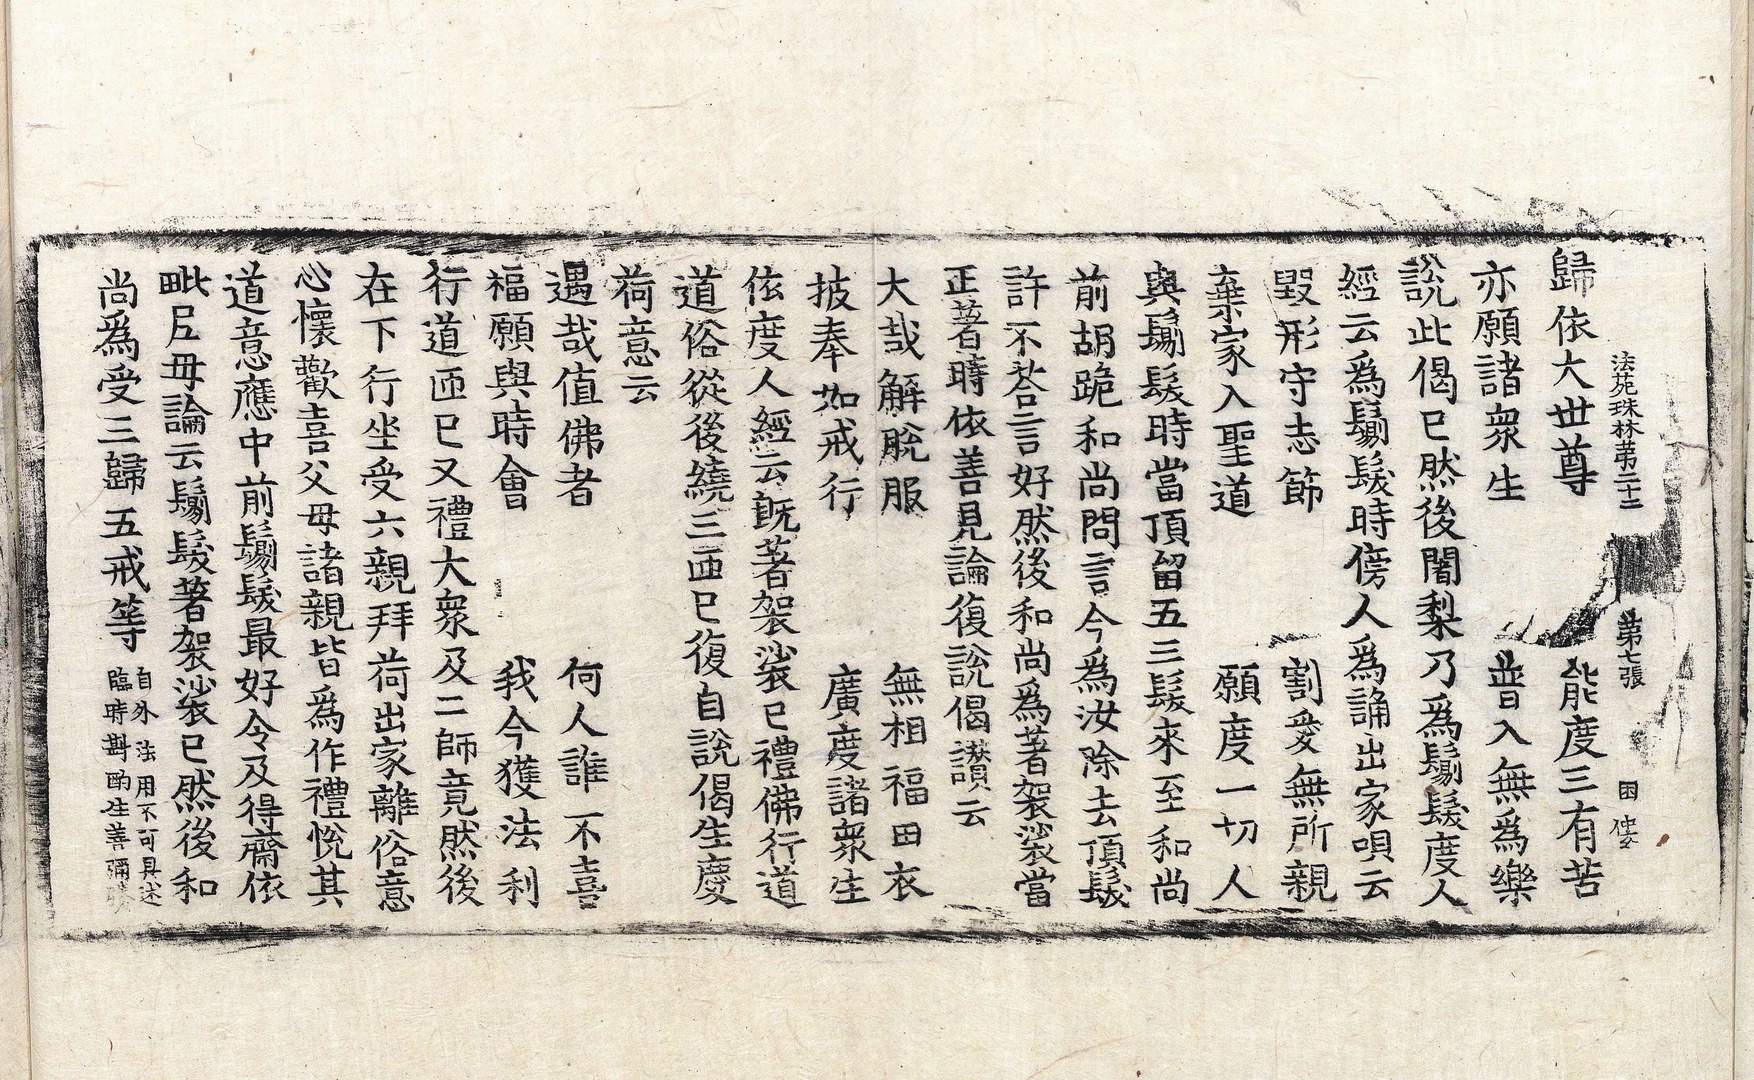 法苑珠林苐二十二 苐七張 困
歸依大世尊 能度三有苦
亦願諸衆生 普入無爲樂
說此偈已然後闍梨乃爲鬀髮度人
經云爲鬀髮時傍人爲誦出家唄云
毀形守志節 割愛無所親
棄家入聖道 願度一切人
與鬀髮時當頂留五三髮來至和尚
前胡跪和尚問言今爲汝除去頂髮
許不荅言好然後和尚爲著袈裟當
正著時依善見論復說偈讃云
大哉解脫服 無相福田衣
披奉如戒行 廣度諸衆生
依度人經云旣著袈裟已禮佛行道
道俗從後繞三匝已復自說偈生慶
荷意云
遇哉值佛者 何人誰不喜
福願與時會 我今獲法利
行道匝已又禮大衆及二師竟然後
在下行坐受六親拜荷出家離俗意
心懷歡喜父母諸親皆爲作禮悅其
道意應中前鬀髮最好令及得齋依
毗尼毋論云鬀髮著袈裟已然後和
尚爲受三歸五戒等
自外法用不可具述
臨時斟酌生善彌勝